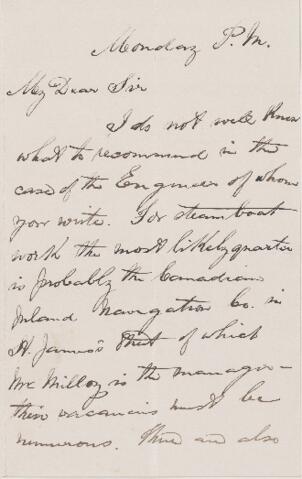 Monday P.M.
My Dear Sir
I do not well know
what to recommend in the
case of the Engineer of whom
you write. For steam boat
work the most likely quarter
is probably the Canadian
Inland Navigation Co. in
St. James's that of which
Mr Milloy is the manager —
their vacancies must be
numerous. There are also